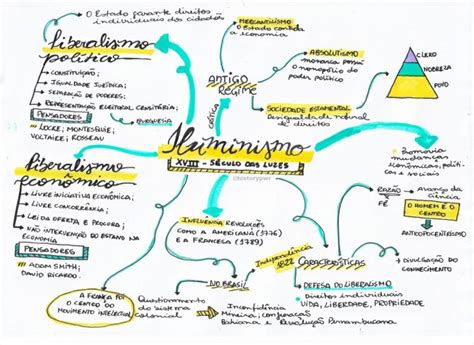 O Estado garante direitos
individuais do cidadão
Liberalismo
político
CONSTITUIÇÃO;
IGUALDADE JURÍDICA;
SEPARAÇÃO DE PODERES;
REPRESENTAÇÃO ELEITORAL CENSITÁRIA;
PENSADORES
BURGUESIA
LOCKE; MONTESQUIEU;
VOLTAIRE; ROSSEAU
Liberalismo
econômico
LIVRE INICIATIVA ECONÔMICA;
LIVRE CONCORRÊNCIA;
LEI DA OFERTA E PROCURA;
NÃO INTERVENÇÃO DO ESTADO NA
ECONOMIA
PENSADORES
ADAM SMITH;
DAVID RICARDO.
A FRANÇA FOI
O CENTRO DO
MOVIMENTO INTELECTUAL
MERCANTILISMO
O ESTADO controla
a economia
ANTIGO
REGIME
CRÍTICA
ABSOLUTISMO
monarca possui
o monopólio do
poder político
SOCIEDADE ESTAMENTAL
Desigualdade natural
de direitos
CLERO
NOBREZA
POVO
Iluminismo
XVIII - SÉCULO DAS LUZES
INFLUÊNCIA REVOLUÇÕES
COMO A AMERICANA (1776)
E A FRANCESA (1789)
Independência
1822
NO BRASIL
Questionamento
do sistema
colonial
Inconfidência
Mineira, conjuração
Bahiana e Revolução Pernambucana
CARACTERÍSTICAS
Promovia
mudanças
econômicas, políti-
cas e sociais
RAZÃO
FÉ
Avanço da
ciência
O HOMEM É O
CENTRO
ANTROPOCENTRISMO
DIVULGAÇÃO DO
CONHECIMENTO
DEFESA DO LIBERALISMO
Direitos individuais
VIDA, LIBERDADE, PROPRIEDADE